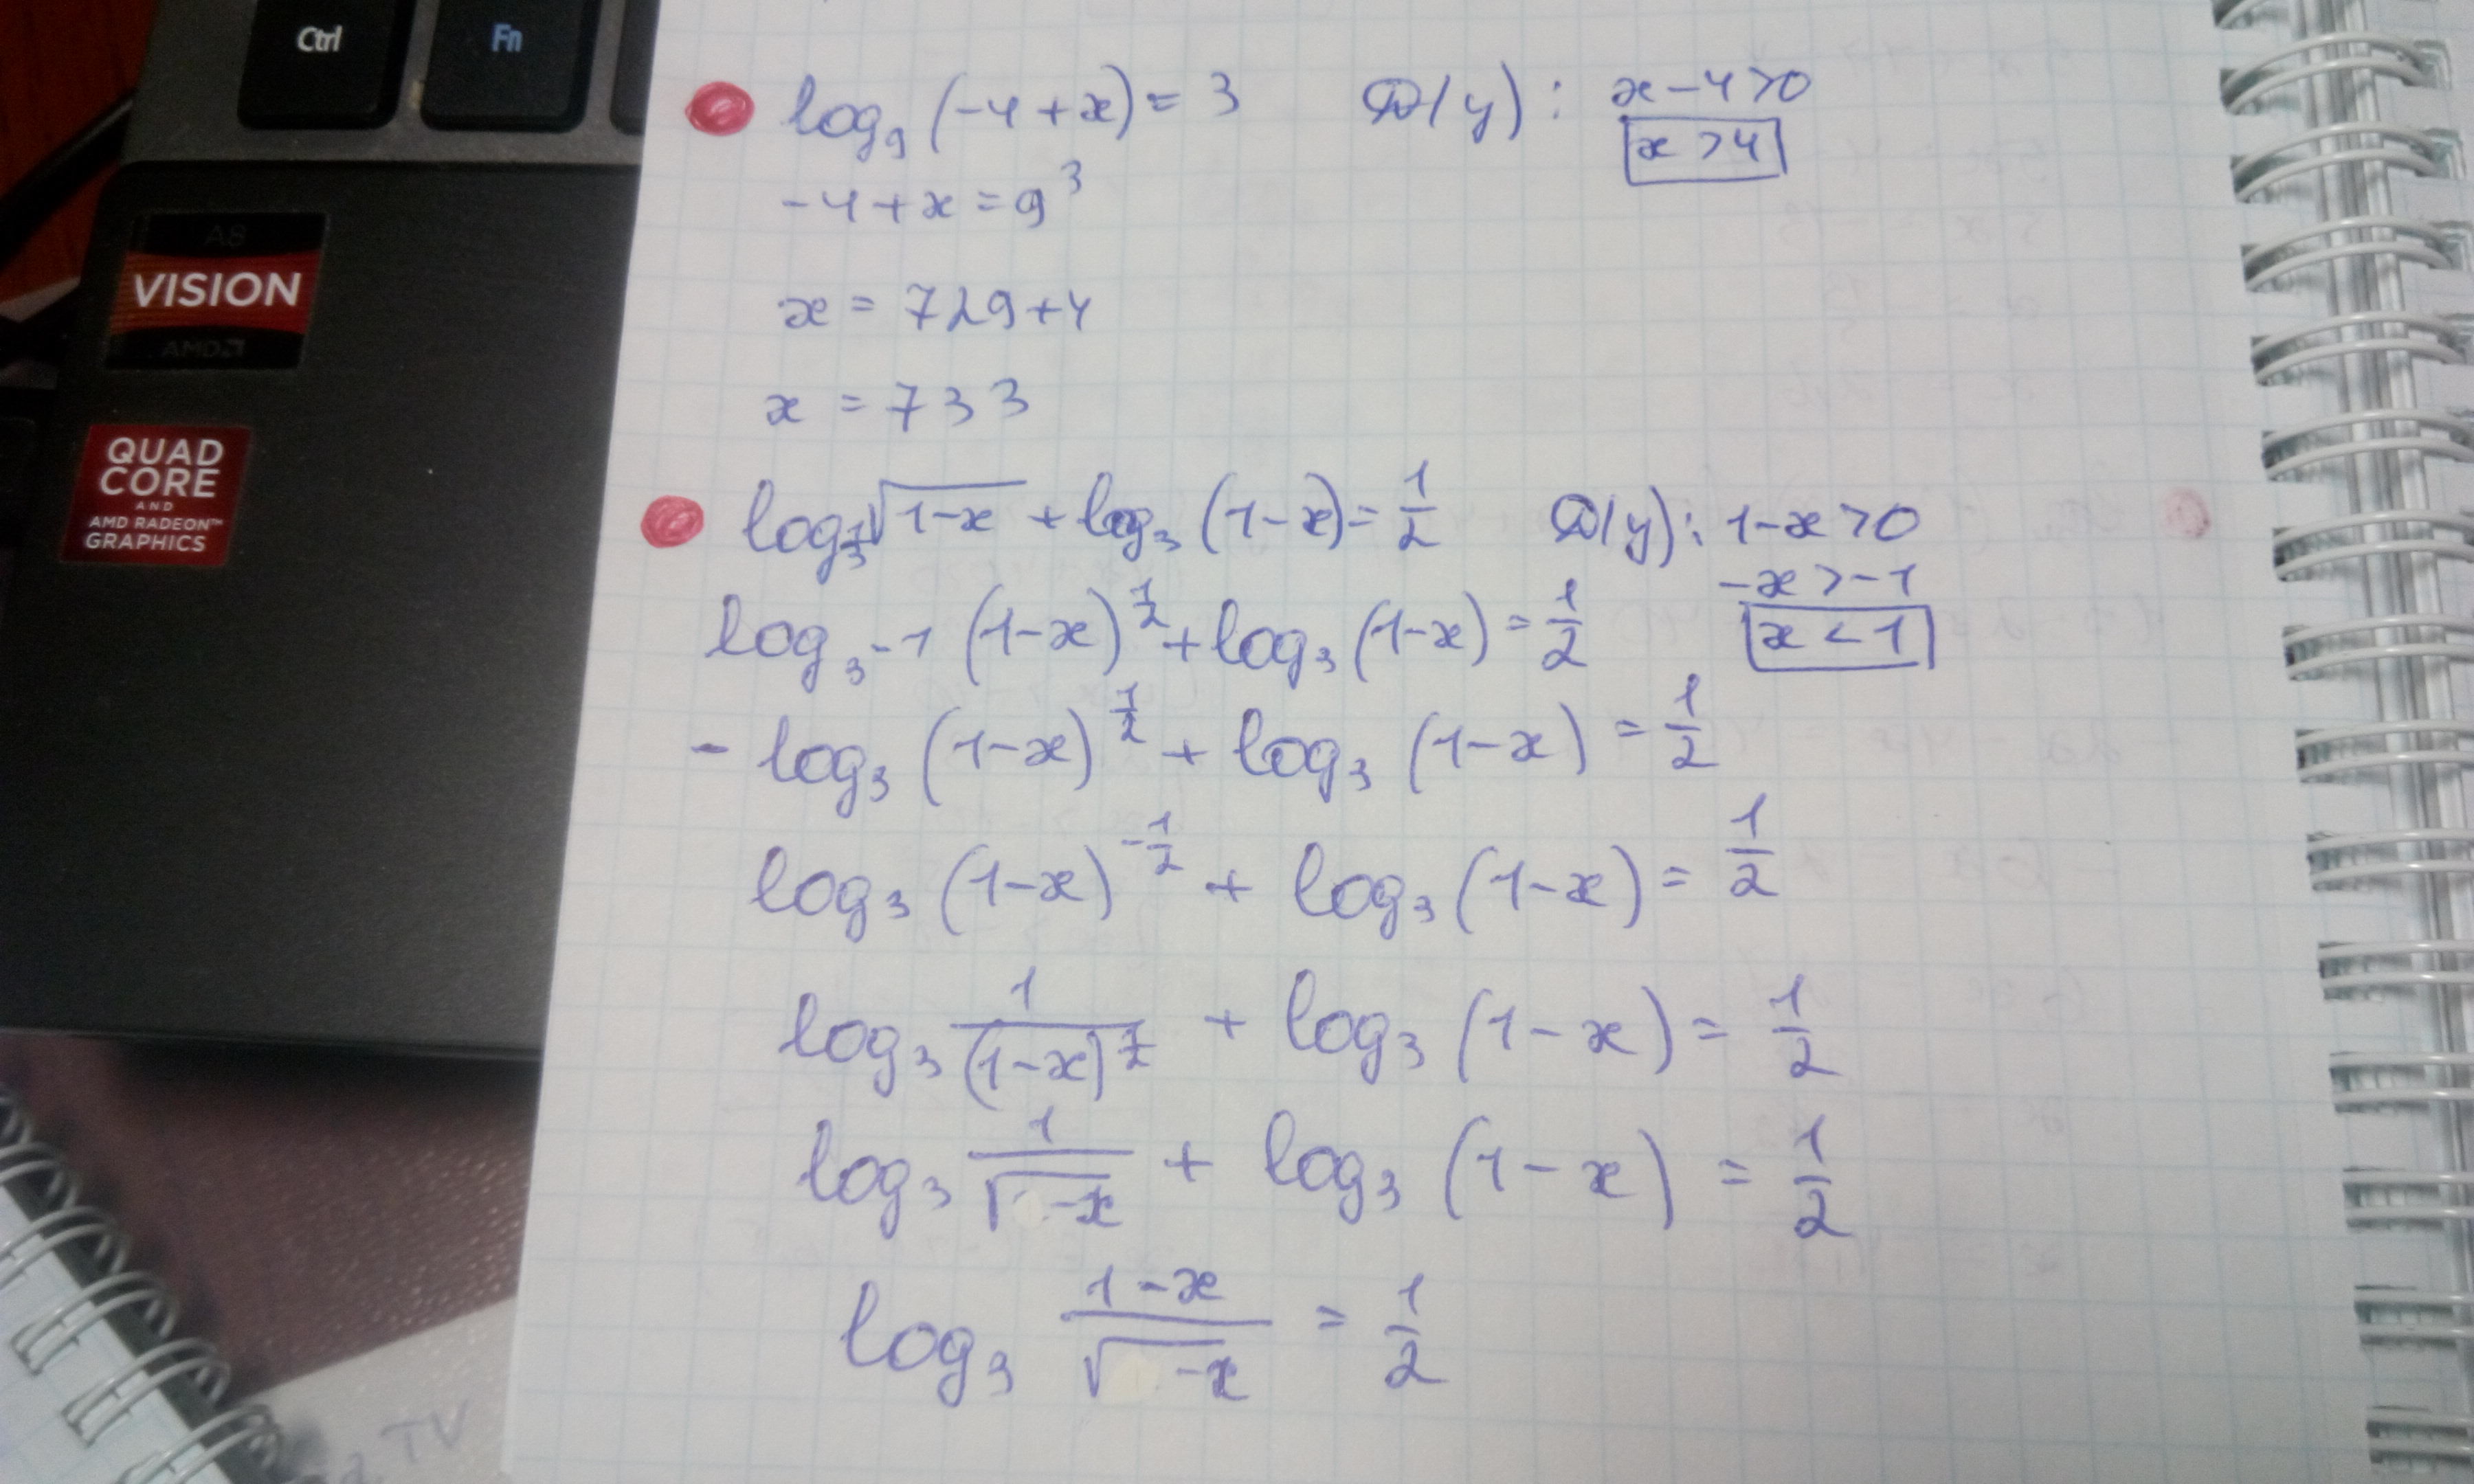 Ctrl Fn
A8
VISION
AMD
QUAD
CORE
AND
AMD RADEON™
GRAPHICS
log₉(-4+x)=3 D(y): x-4>0
x>4
-4+x=9³
x=729+4
x=733
log_{1/3}√(1-x)+log₃(1-x)=1/2 D(y): 1-x>0
-x>-1
log₃-1(1-x)^{1/2}+log₃(1-x)=1/2 x<1
-log₃(1-x)^{1/2}+log₃(1-x)=1/2
log₃(1-x)^{-1/2}+log₃(1-x)=1/2
log₃ 1/(1-x)^{1/2}+log₃(1-x)=1/2
log₃ 1/√(-x)+log₃(1-x)=1/2
log₃ (1-x)/√(-x)=1/2
TV